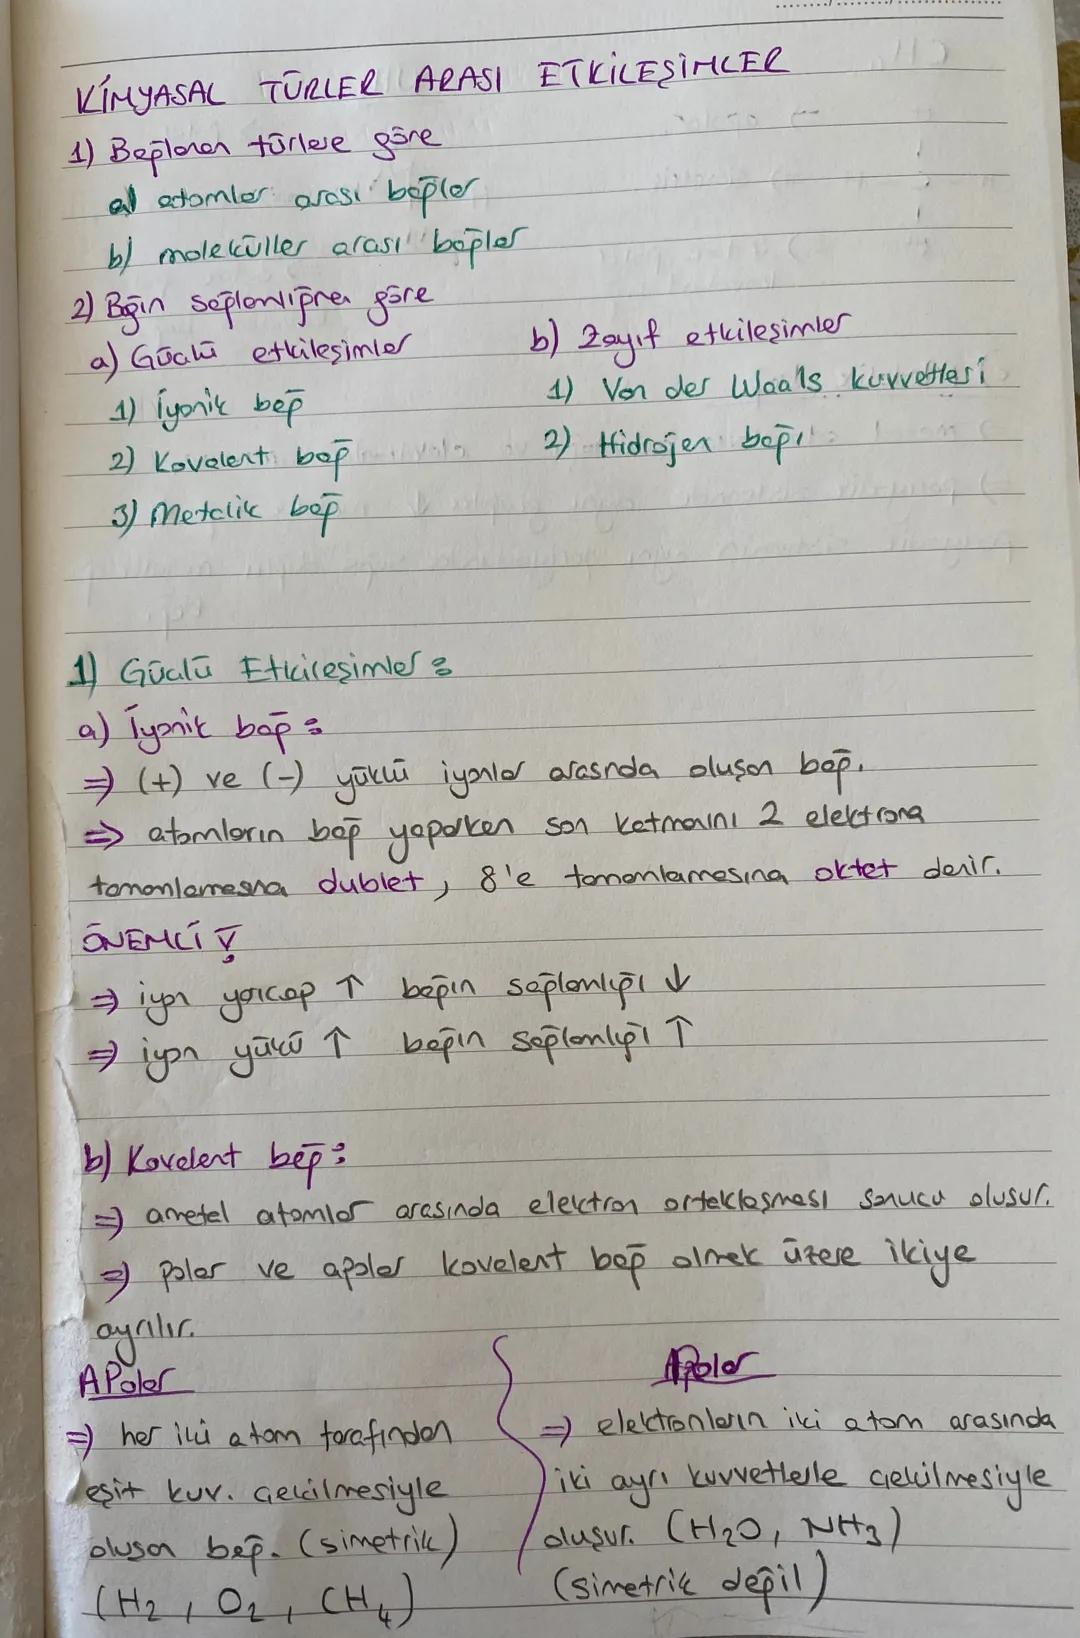 KİMYASAL TÜRLER ARASI ETKİLEŞİMLER
1) Bağlanan türlere göre
a) atomlar arası bağlar
b) moleküller arası bağlar
2) Bağın sağlamlığına göre
a) Güçlü etkileşimler
1) İyonik bağ
2) Kovalent bağ
3) Metalik bağ
b) Zayıf etkileşimler
1) Van der Waals kuvvetleri
2) Hidrojen bağı
1) Güçlü Etkileşimler :
a) İyonik bağ :
⇒ (+) ve (-) yüklü iyonlar arasında oluşan bağ.
⇒ atomların bağ yaparken son katmanını 2 elektrona
tamamlamasına dublet, 8'e tamamlamasına oktet denir.
ÖNEMLİ !
⇒ iyon yarıçap ↑ bağın sağlamlığı ↓
⇒ iyon yükü ↑ bağın sağlamlığı ↑
b) Kovalent bağ :
⇒ ametal atomlar arasında elektron ortaklaşması sonucu oluşur.
⇒ polar ve apolar kovalent bağ olmak üzere ikiye
ayrılır.
APolar
⇒ her iki atom tarafından
eşit kuv. çekilmesiyle
oluşan bağ. (simetrik)
(H2, O2, CH4)
Polar
⇒ elektronların iki atom arasında
iki ayrı kuvvetlerle çekilmesiyle
oluşur. (H2O, NH3)
(simetrik değil)